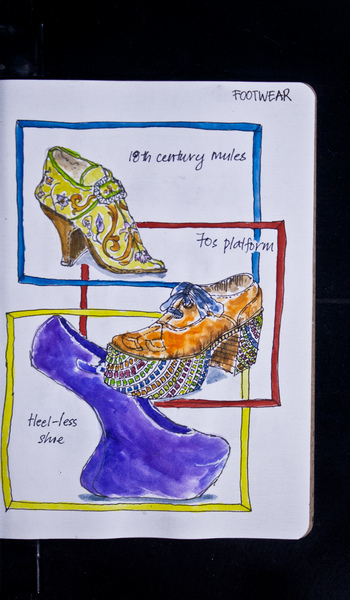 FOOTWEAR
18th century mules
70s platform
Heel-less
shoe